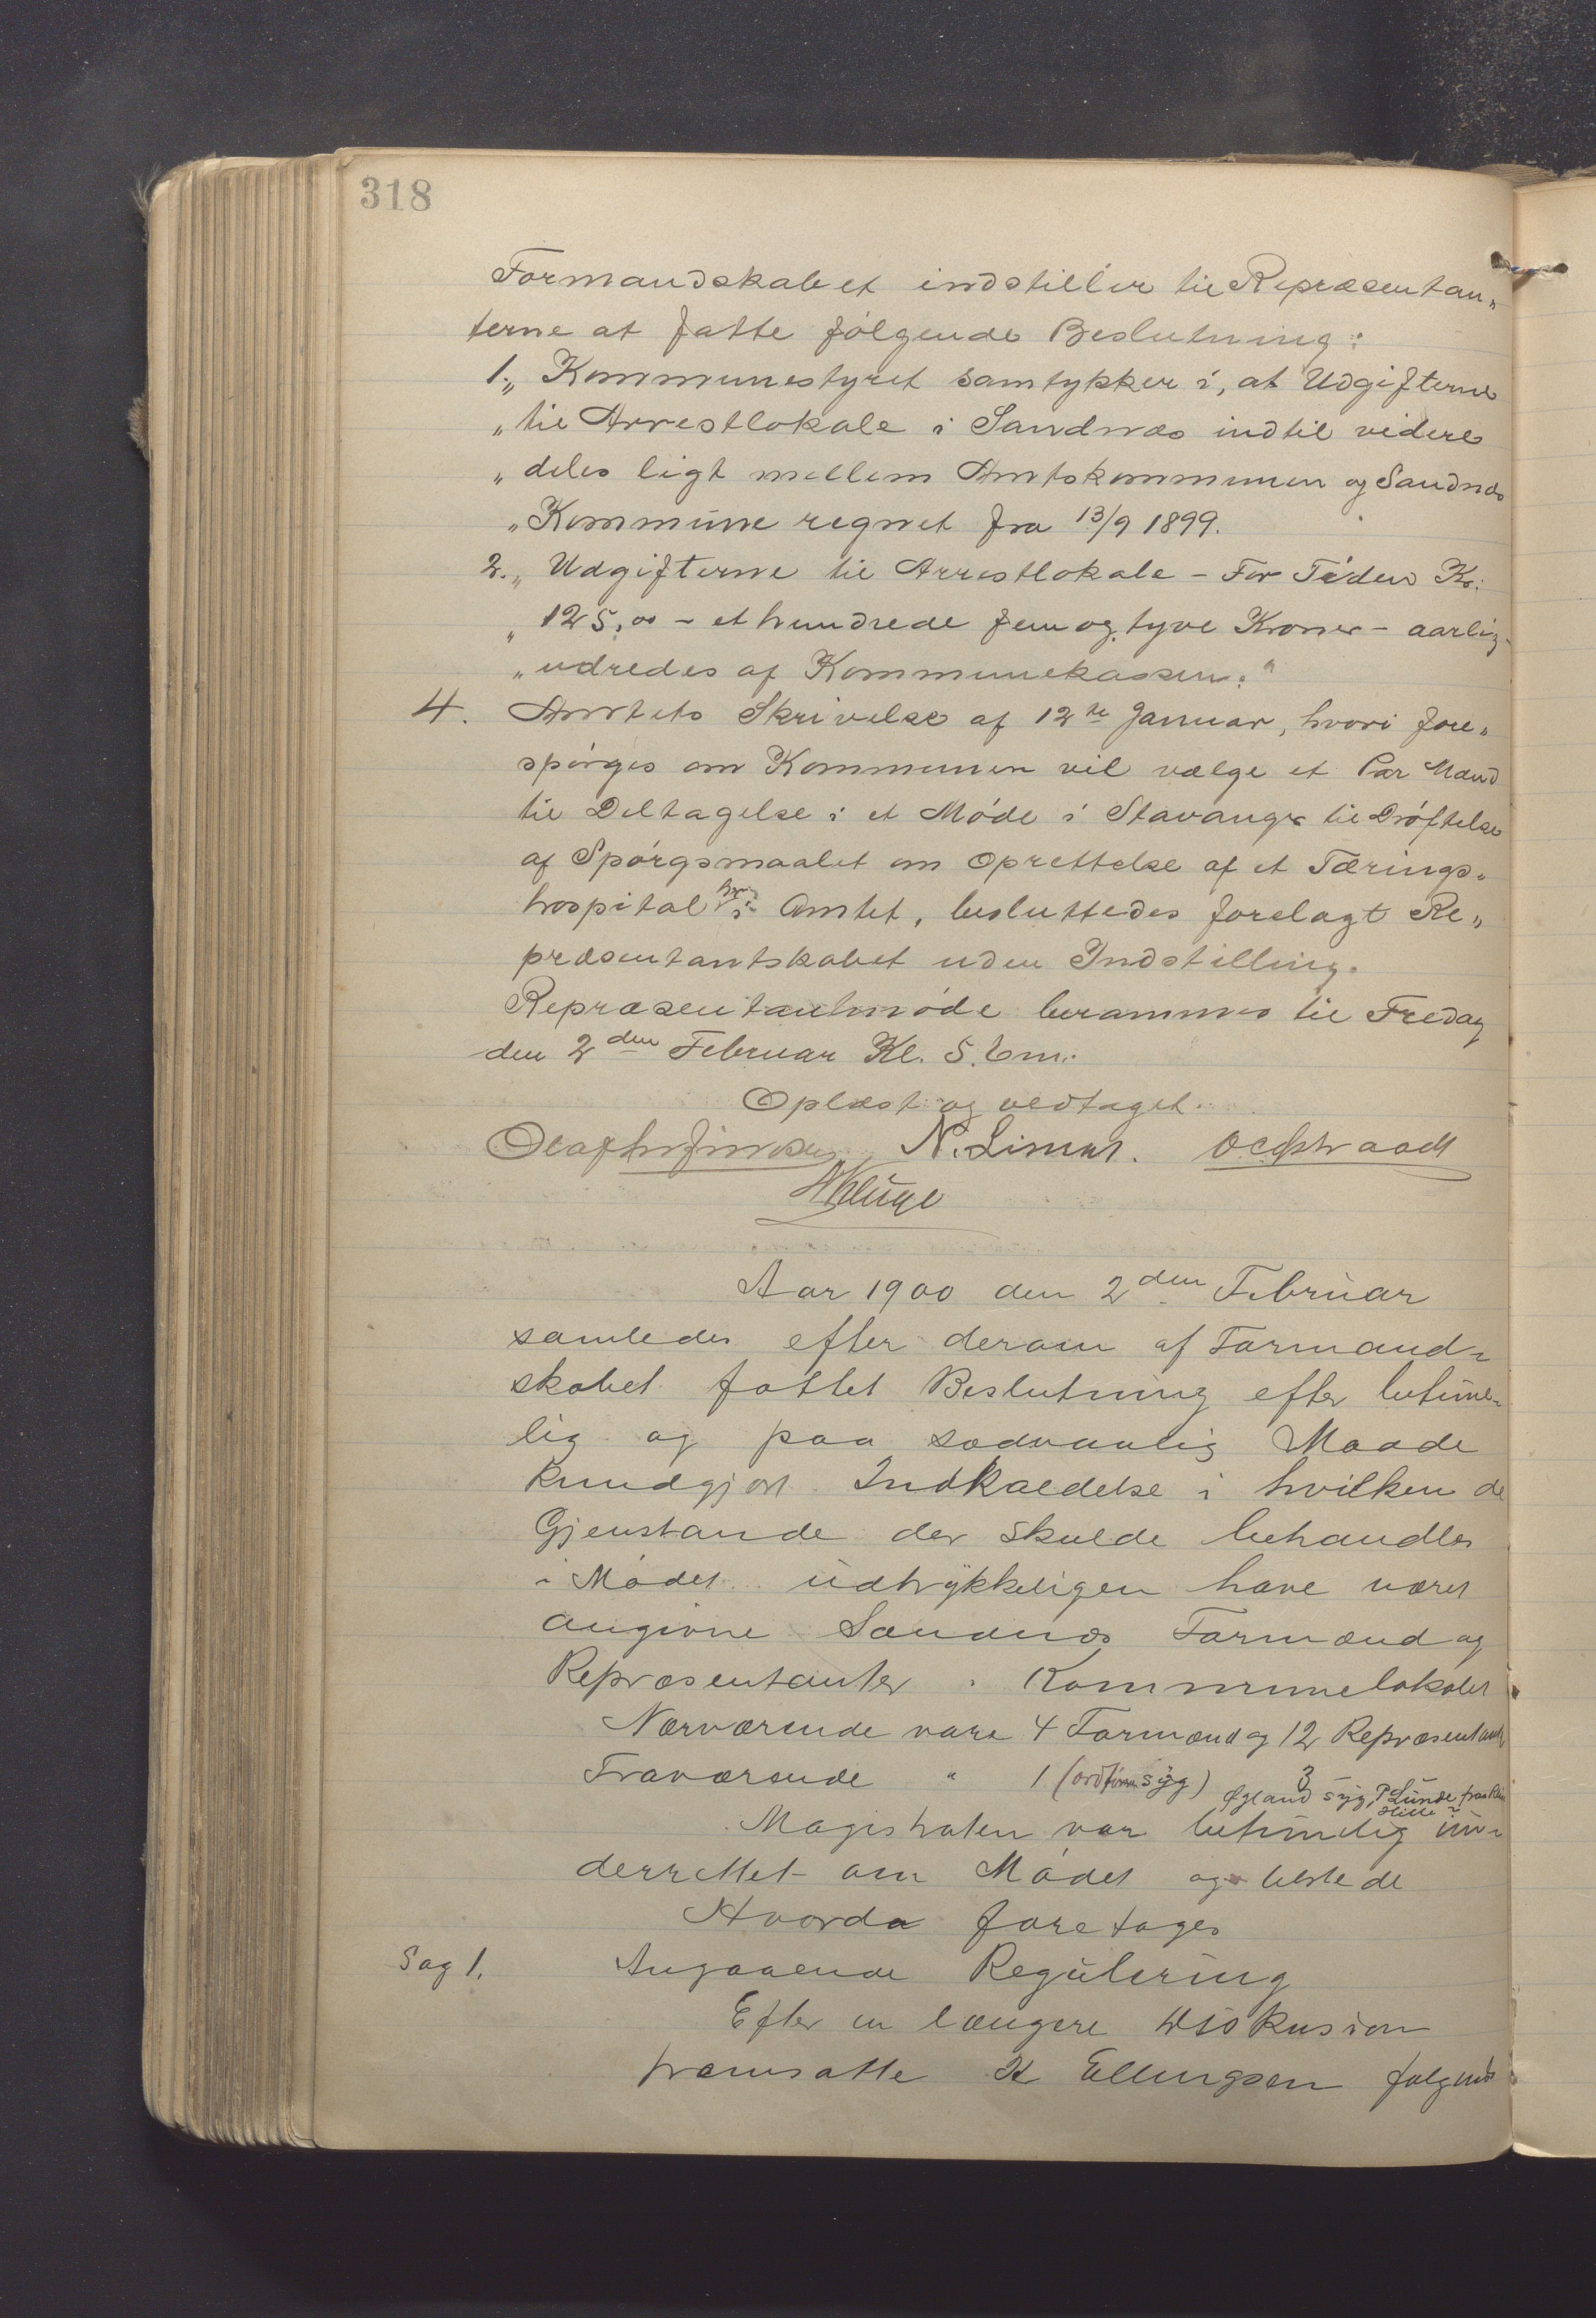 318
Formandskabet indstiller til Repræsentan„
terne at fatte følgende Beslutning:
1. „Kommunestyret samtykker i, at Udgifterne
„til Arrestlokale i Sandnæs indtil videre
„deles ligt mellem Amtskommunen og Sandnæs
„Kommune regnet fra 13/9 1899.
2. „Udgifterne til Arrestlokale – For Tiden Kr.
„125,00 – et hundrede fem og tyve Kroner – aarlig
„udredes af Kommunekassen."
4. Amtets Skrivelse af 12te Januar, hvori fore„
spørges om Kommunen vil vælge et Par Mænd
til Deltagelse i et Møde i Stavanger til Drøftelse
af Spørgsmaalet om Oprettelse af et Tærings„
hospital her i Amtet, besluttedes forelagt Re„
præsentantskabet uden Indstilling.
Repræsentantmøde berammes til Fredag
den 2den Februar Kl. 5. Em.
Oplæst og vedtaget.
N. Limer. O Chr Waadt
A Kluge
Aar 1900 den 2den Februar
samledes efter derom af Formand-
skabet fattet Beslutning efter betime-
lig og paa sædvanlig Maade
kundgjort Indkaldelse i hvilken de
Gjenstande der skulde behandles
i Mødet udtrykkeligen have været
angivne Sandnæs Formænd og
Repræsentanter i Kommunelokalet
Nærværende vare 4 Formænd og 12 Repræsentanter
Fraværende " 1 (ordfører syg) 3 Øgland syg, P Lunde
Hille
Magistraten var betimelig un-
derrettet om Mødet og tilstede
Hvorda foretoges
Sag 1. Angaaende Regulering
Efter en længere Diskusion
fremsatte K Ellingsen følgende